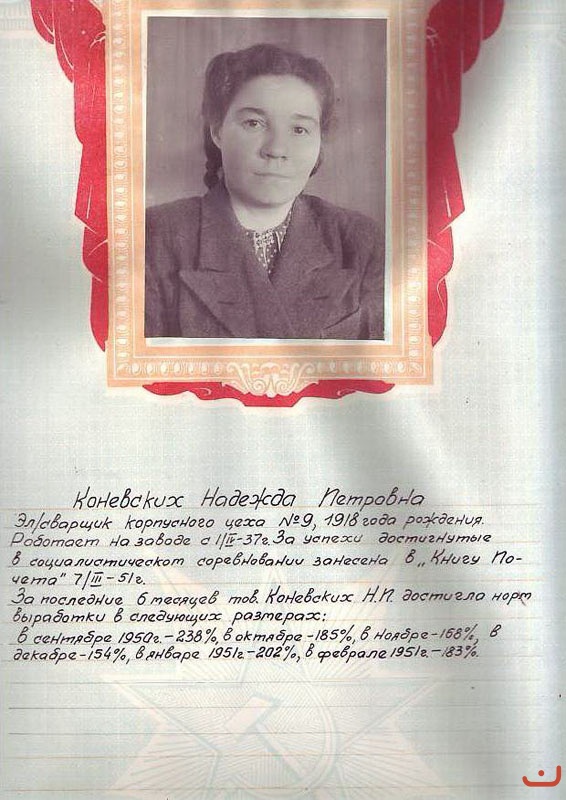 Коневских Надежда Петровна
Эл/сварщик корпусного цеха №9, 1918 года рождения.
Работает на заводе с 1/II-37г. За успехи достигнутые
в социалистическом соревновании занесена в „Книгу По-
чета" 7/III-51г.
За последние 6 месяцев тов. Коневских Н.П. достигла норм
выработки в следующих размерах:
В сентябре 1950г.-238%, в октябре-185%, в ноябре-168%, в
декабре-154%, в январе 1951г-202%, в феврале 1951г.-183%.